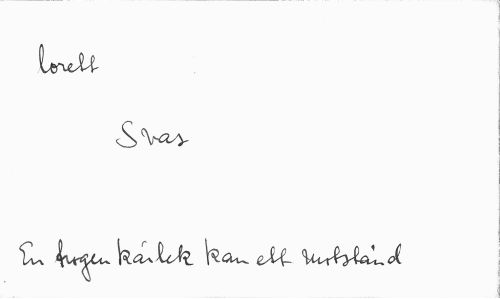 lorett
Svas
En trogen kärlek kan ett motstånd